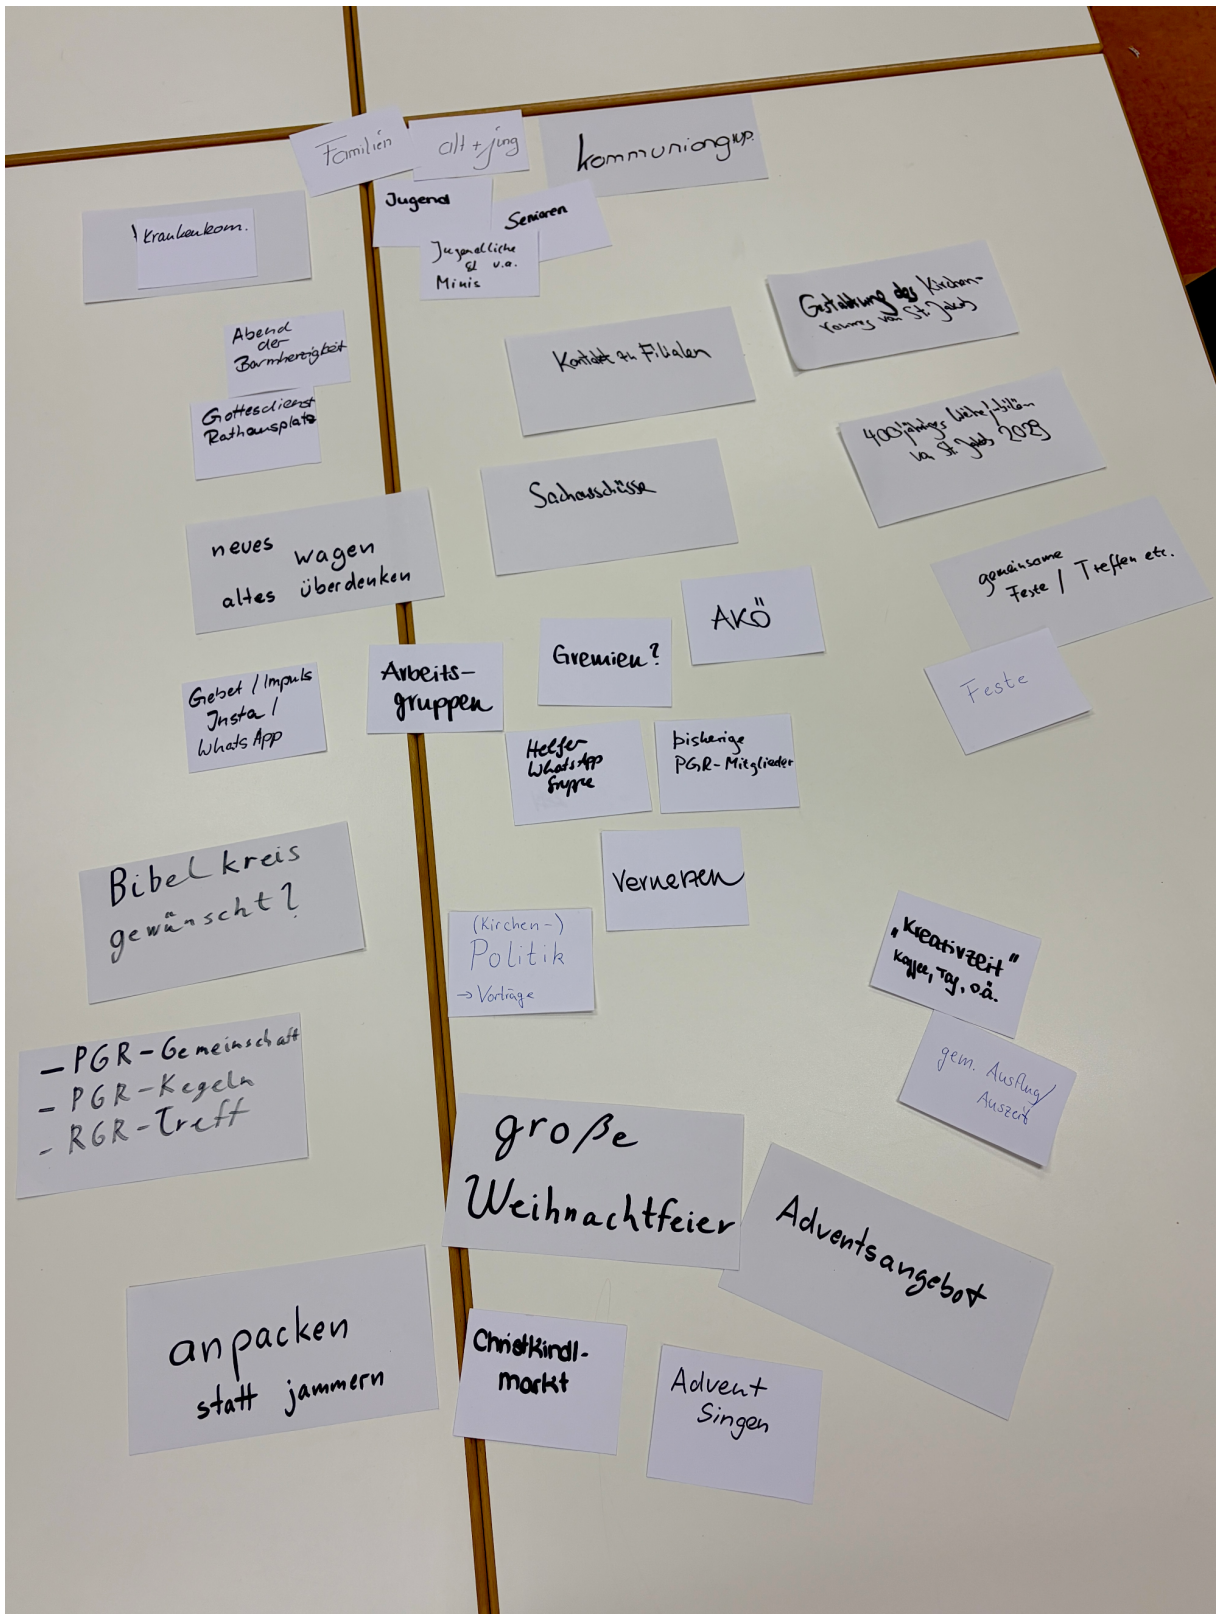 Familien
alt + jung
Kommuniongrup.
Krankenkom.
Jugend
Senioren
Jugendliche
u.a.
Minis
Abend
der
Barmherzigkeit
Gottesdienst
Rathausplatz
Kontakt zu Filialen
Gestaltung des Kirchen-
raumes von St. Jakob
400jähriges Weihejubiläum
von St. Jakob 2029
Sachausschüsse
neues wagen
altes überdenken
gemeinsame
Feste / Treffen etc.
Feste
AKÖ
Gremien?
Arbeits-
gruppen
Gebet / Impuls
Insta /
WhatsApp
Helfer
WhatsApp
Gruppe
bisherige
PGR-Mitglieder
Vernetzen
Bibelkreis
gewünscht?
(Kirchen-)
Politik
→ Vorträge
„Kreativzeit"
Kaffee, Tag, o.ä.
gem. Ausflug/
Auszeit
- PGR-Gemeinschaft
- PGR-Kegeln
- RGR-Treff
große
Weihnachtfeier
Adventsangebot
anpacken
statt jammern
Christkindl-
markt
Advent
Singen